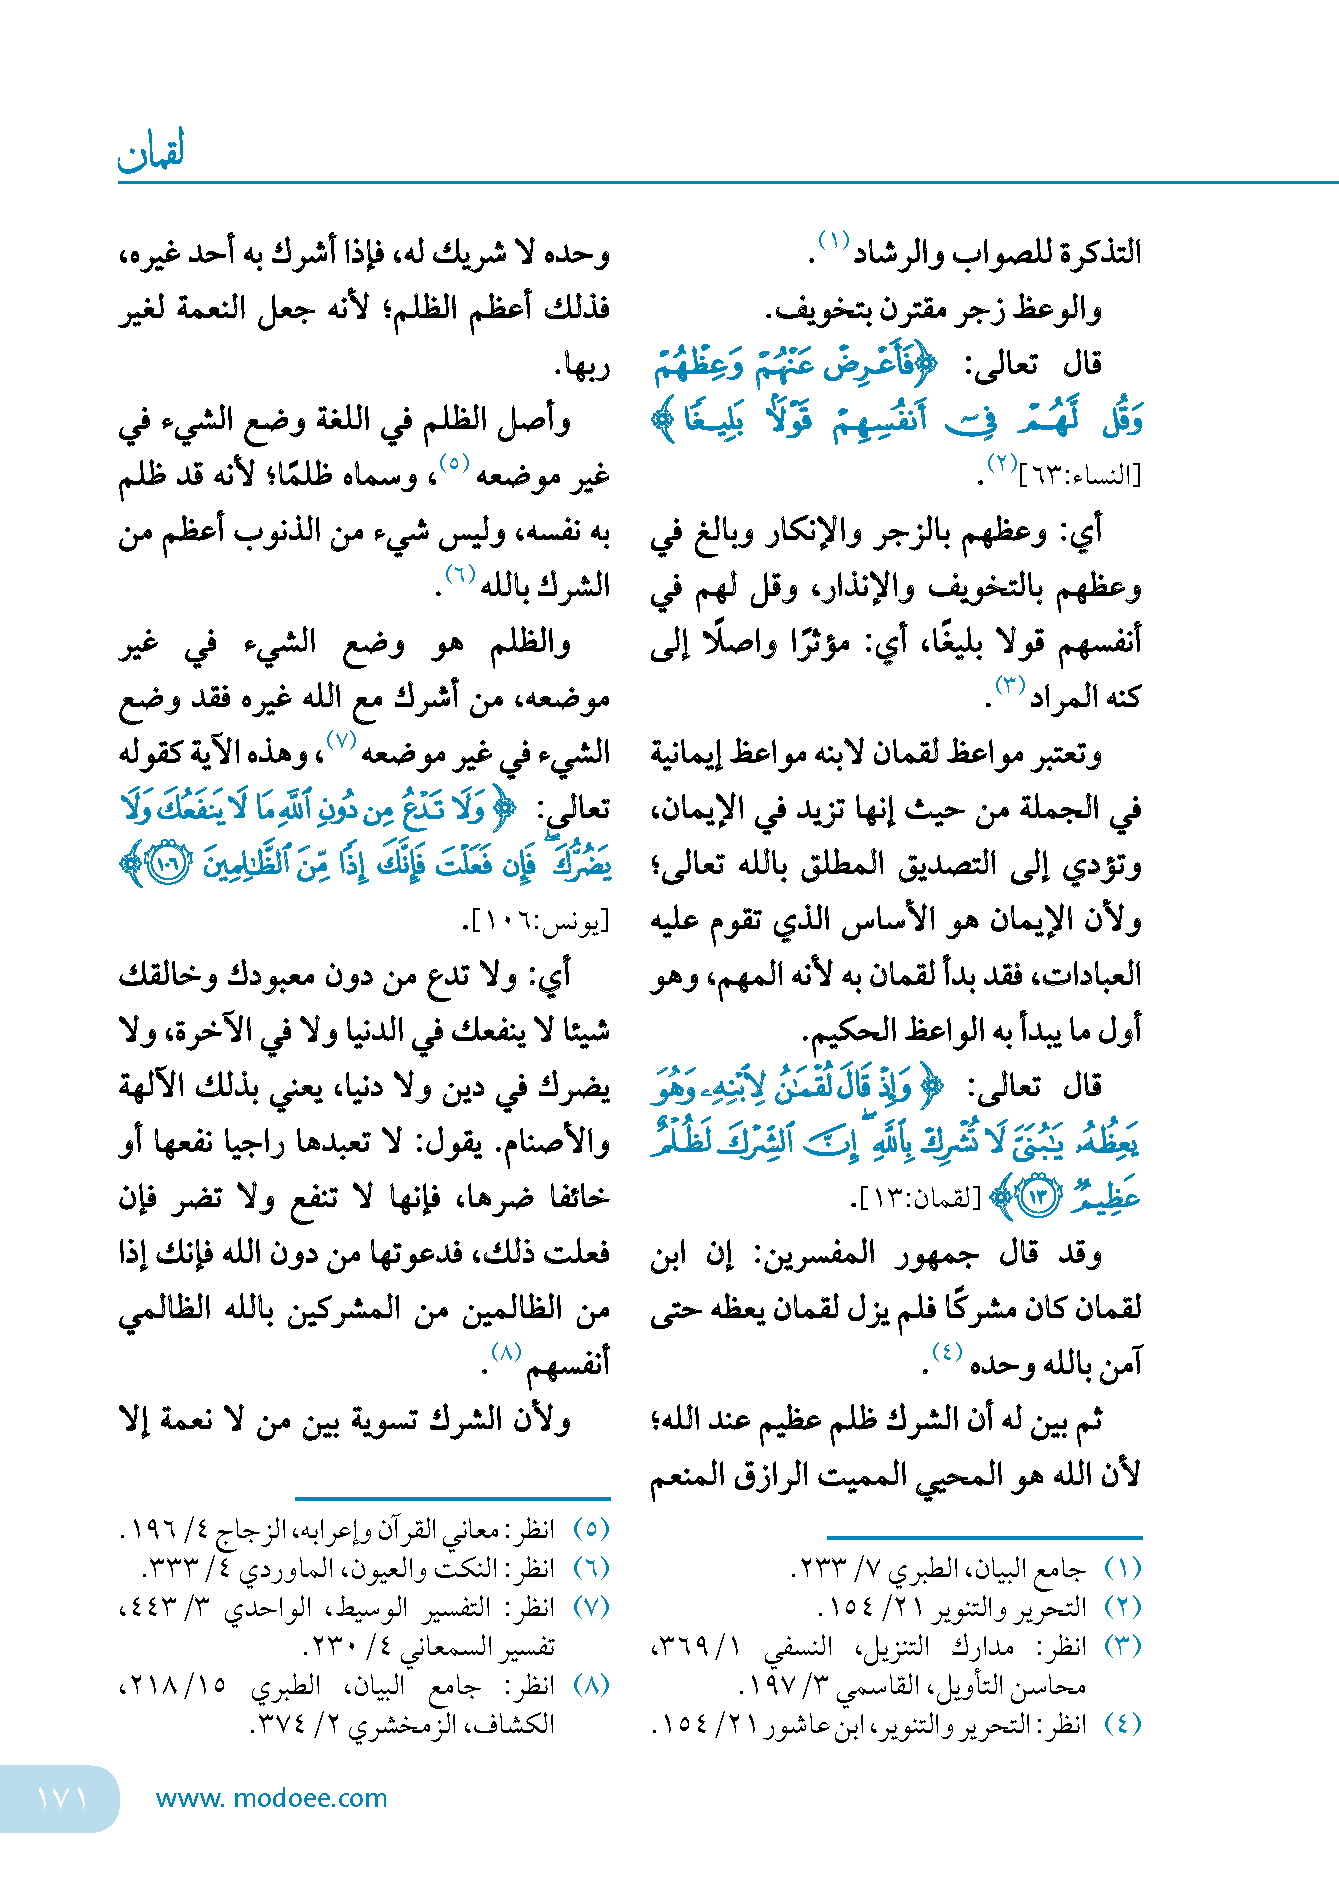 لقمان
التذكرة للصواب والرشاد(١).
والوعظ زجر مقترن بتخويف.
قال تعالى: ﴿فَأَعْرِضْ عَنْهُمْ وَعِظْهُمْ
وَقُل لَّهُمْ فِىٓ أَنفُسِهِمْ قَوْلًۢا بَلِيغًا﴾
[النساء:٦٣](٢).
أي: وعظهم بالزجر والإنكار وبالغ في
وعظهم بالتخويف والإنذار، وقل لهم في
أنفسهم قولا بليغًا، أي: مؤثرًا واصلًا إلى
كنه المراد(٣).
وتعتبر مواعظ لقمان لابنه مواعظ إيمانية
في الجملة من حيث إنها تزيد في الإيمان،
وتؤدي إلى التصديق المطلق بالله تعالى؛
ولأن الإيمان هو الأساس الذي تقوم عليه
العبادات، فقد بدأ لقمان به لأنه المهم، وهو
أول ما يبدأ به الواعظ الحكيم.
قال تعالى: ﴿وَإِذْ قَالَ لُقْمَٰنُ لِٱبْنِهِۦ وَهُوَ
يَعِظُهُۥ يَٰبُنَىَّ لَا تُشْرِكْ بِٱللَّهِ ۖ إِنَّ ٱلشِّرْكَ لَظُلْمٌ
عَظِيمٌ ۝١٣﴾ [لقمان:١٣].
وقد قال جمهور المفسرين: إن ابن
لقمان كان مشركًا فلم يزل لقمان يعظه حتى
آمن بالله وحده(٤).
ثم بين له أن الشرك ظلم عظيم عند الله؛
لأن الله هو المحيي المميت الرازق المنعم
(١) جامع البيان، الطبري ٧/ ٢٣٣.
(٢) التحرير والتنوير ٢١/ ١٥٤.
(٣) انظر: مدارك التنزيل، النسفي ١/ ٣٦٩،
محاسن التأويل، القاسمي ٣/ ١٩٧.
(٤) انظر: التحرير والتنوير، ابن عاشور ٢١/ ١٥٤.
وحده لا شريك له، فإذا أشرك به أحد غيره،
فذلك أعظم الظلم؛ لأنه جعل النعمة لغير
ربها.
وأصل الظلم في اللغة وضع الشيء في
غير موضعه(٥)، وسماه ظلمًا؛ لأنه قد ظلم
به نفسه، وليس شيء من الذنوب أعظم من
الشرك بالله(٦).
والظلم هو وضع الشيء في غير
موضعه، من أشرك مع الله غيره فقد وضع
الشيء في غير موضعه(٧)، وهذه الآية كقوله
تعالى: ﴿وَلَا تَدْعُ مِن دُونِ ٱللَّهِ مَا لَا يَنفَعُكَ وَلَا
يَضُرُّكَ ۖ فَإِن فَعَلْتَ فَإِنَّكَ إِذًا مِّنَ ٱلظَّٰلِمِينَ ۝١٠٦﴾
[يونس:١٠٦].
أي: ولا تدع من دون معبودك وخالقك
شيئا لا ينفعك في الدنيا ولا في الآخرة، ولا
يضرك في دين ولا دنيا، يعني بذلك الآلهة
والأصنام. يقول: لا تعبدها راجيا نفعها أو
خائفا ضرها، فإنها لا تنفع ولا تضر فإن
فعلت ذلك، فدعوتها من دون الله فإنك إذا
من الظالمين من المشركين بالله الظالمي
أنفسهم(٨).
ولأن الشرك تسوية بين من لا نعمة إلا
(٥) انظر: معاني القرآن وإعرابه، الزجاج ٤/ ١٩٦.
(٦) انظر: النكت والعيون، الماوردي ٤/ ٣٣٣.
(٧) انظر: التفسير الوسيط، الواحدي ٣/ ٤٤٣،
تفسير السمعاني ٤/ ٢٣٠.
(٨) انظر: جامع البيان، الطبري ١٥/ ٢١٨،
الكشاف، الزمخشري ٢/ ٣٧٤.
www. modoee.com
١٧١